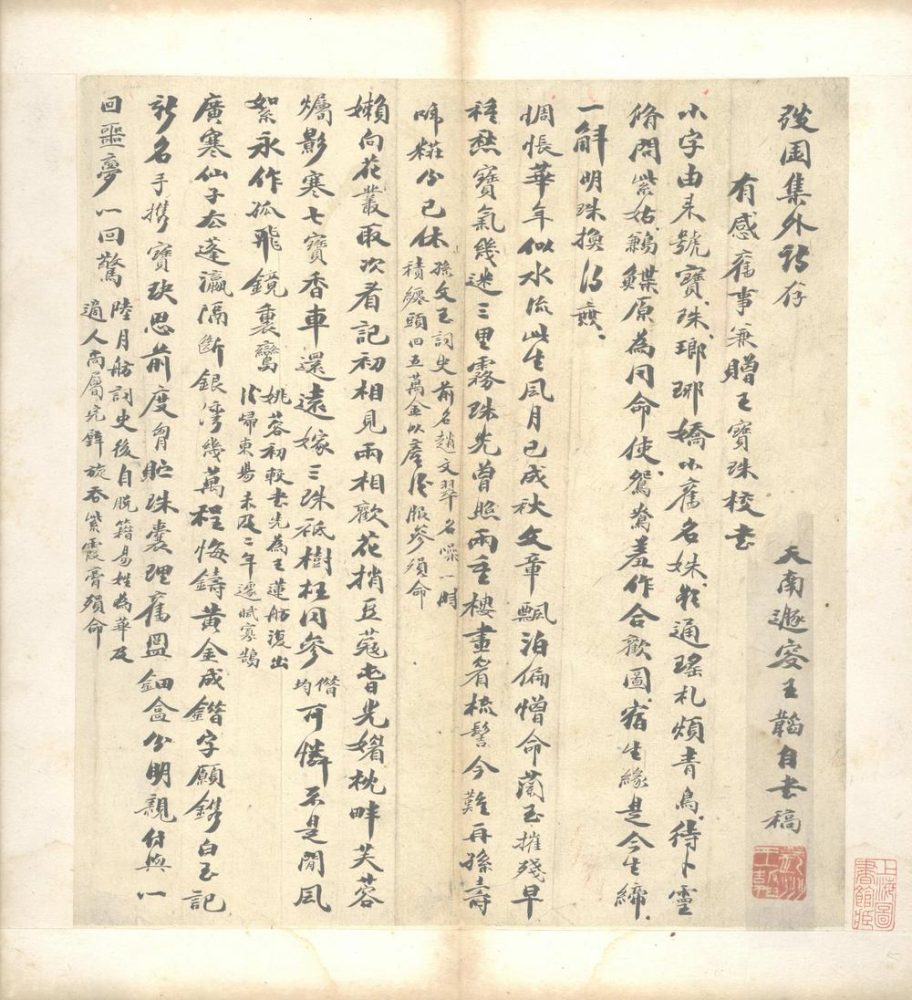 弢園集外詩存
天南遯窟王韜自書稿
有感舊事兼贈王寶珠校書
小字由來號寶珠瑯琊嬌小舊名姝能通瑤札煩青鳥待卜靈
脩問紫姑鶼鰈原為同命使鴛鴦羞作合歡圖宿生緣是今生締
一斛明珠換得無
惆悵華年似水流此生風月已成秋文章飄泊偏憎命蘭玉摧殘早
種愁寶氣幾迷三里霧珠光曾照兩重樓畫眉梳髻今難再孫壽
啼糚分已休
孫文玉詞史前名趙文翠名噪一時
積纏頭四五萬金以誤服參殞命
嬾向花叢取次看記初相見兩相歡花梢豆蔻春光媚枕畔芙蓉
燭影寒七寶香車還遠嫁三珠祇樹枉同參
僭
均
可憐不是閒風
絮永作孤飛鏡裏鸞
姚蓉初較書先為王蓮舫復出
後歸東暘未及二年遽賦寡鵠
廣寒仙子在蓬瀛隔斷銀灣幾萬程悔鑄黃金成錯字願鐫白玉記
新名手攜寶玦思前度胷貯珠囊理舊盟鈿盒分明親付與一
回噩夢一回驚
陸月舫詞史後自脫籍易姓為華及
適人尚屬完鋅旋吞紫霞膏殞命
上海圖
書館藏